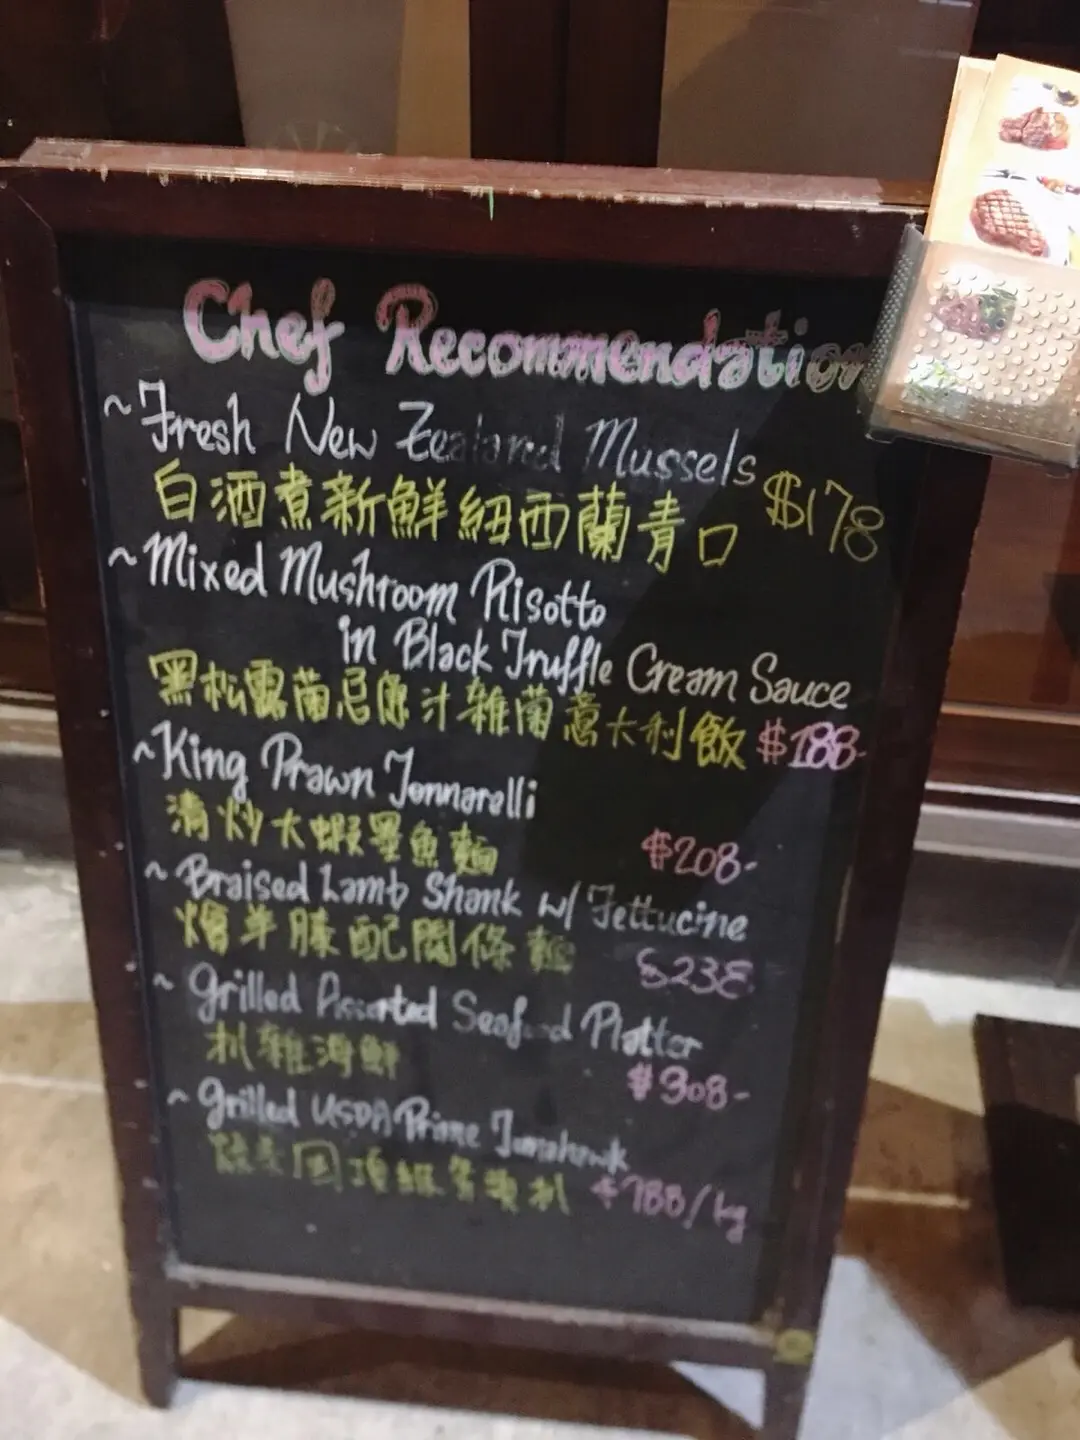 Chef Recommendation
~Fresh New Zealand Mussels
白酒煮新鮮紐西蘭青口 $178
~Mixed Mushroom Risotto
in Black Truffle Cream Sauce
黑松露菌忌廉汁雜菌意大利飯 $188-
~King Prawn Tonnarelli
清炒大蝦墨魚麵 $208-
~Braised Lamb Shank w/ Fettucine
燴羊膝配闊條麵 $238
~Grilled Assorted Seafood Platter
扒雜海鮮 $308-
~Grilled USDA Prime Tomahawk
國頂級斧頭扒 $788/kg